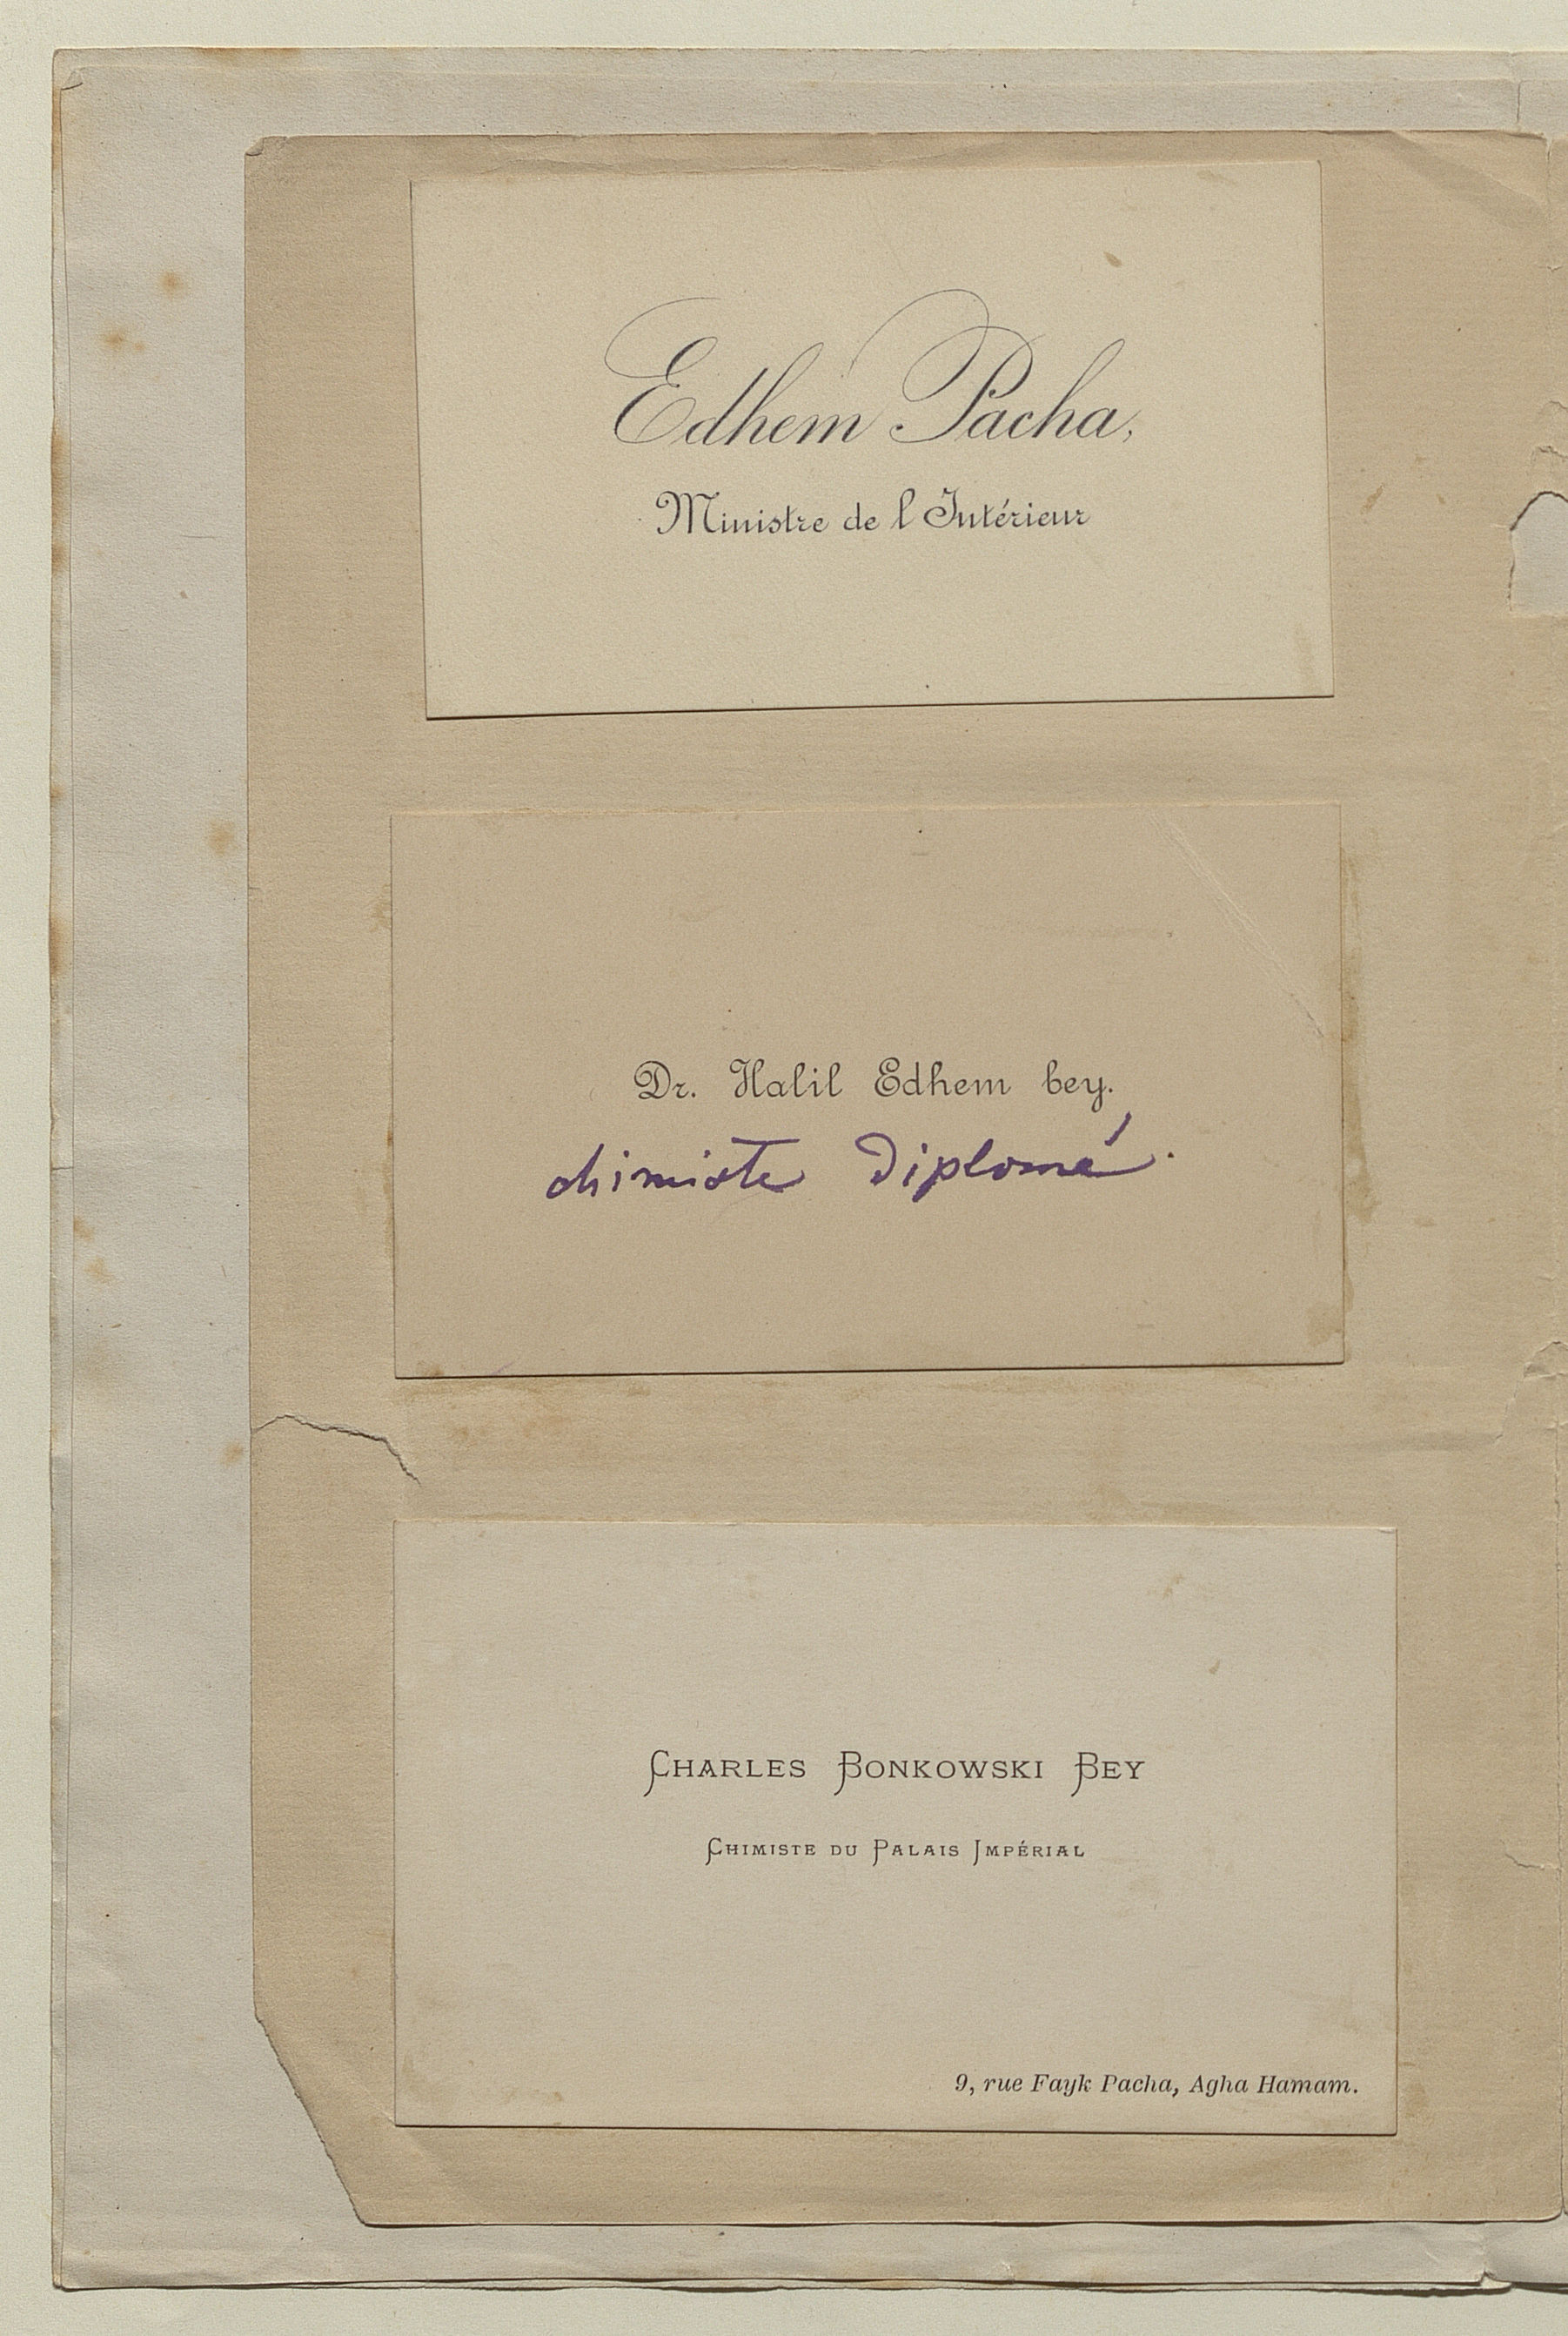 Edhem Pacha,
Ministre de l'Intérieur
Dr. Halil Edhem bey.
chimiste Diplomé.
CHARLES BONKOWSKI BEY
CHIMISTE DU PALAIS IMPÉRIAL
9, rue Fayk Pacha, Agha Hamam.